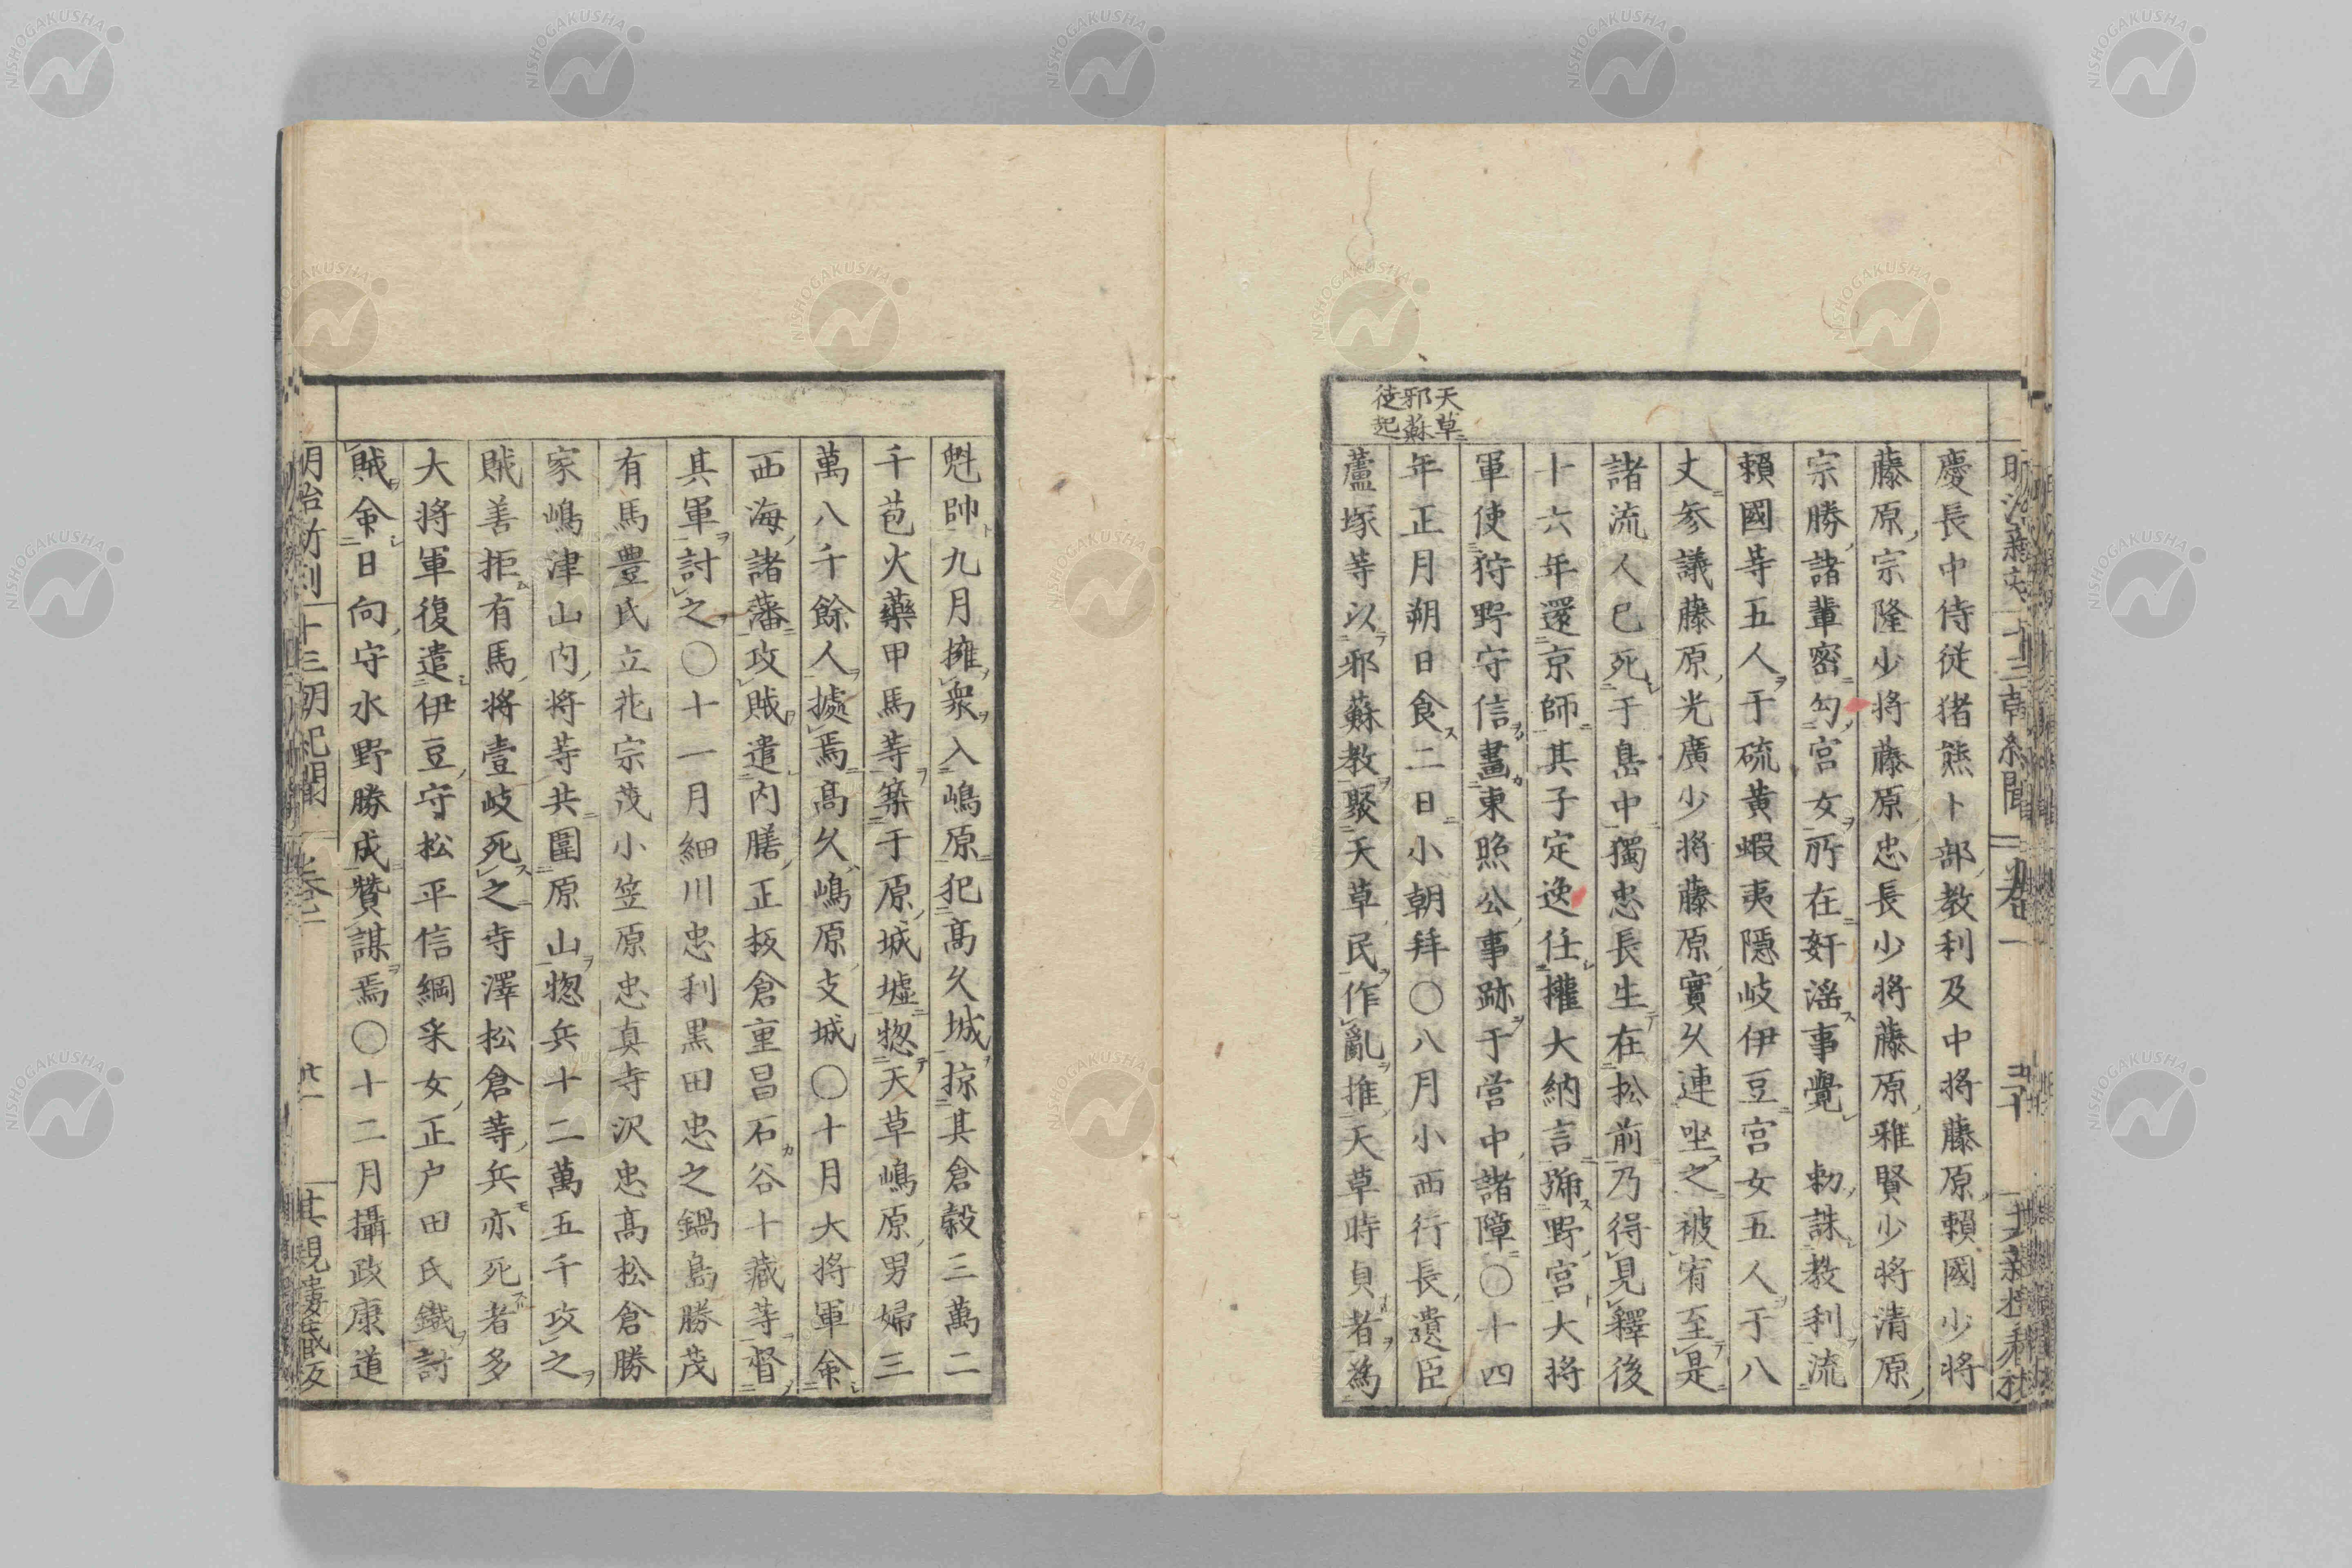 慶長中侍従猪熊卜部教利及中將藤原頼國少將
藤原宗隆少將藤原忠長少將藤原雅賢少將清原
宗勝諸輩密勾宮女所在奸滛事覺　勅誅教利流
頼國等五人于硫黄蝦夷隱岐伊豆宮女五人于八
丈参議藤原光廣少將藤原實久連坐之被宥至是
諸流人已死于島中獨忠長生在松前乃得見釋後
十六年還京師其子定逸任權大納言號野宮大將
軍使狩野守信畫東照公事跡于営中諸障〇十四
年正月朔日食二日小朝拜〇八月小西行長遺臣
蘆塚等以邪蘇教聚天草民作亂推天草時貞者為
天草
邪蘇
徒起
魁帥九月擁衆入嶋原犯高久城掠其倉榖三萬二
千苞火藥甲馬等築于原城墟惣天草嶋原男婦三
萬八千餘人據焉高久嶋原支城〇十月大将軍命
西海諸藩攻賊遣内膳正板倉重昌石谷十藏等督
其軍討之〇十一月細川忠利黒田忠之鍋島勝茂
有馬豊氏立花宗茂小笠原忠真寺沢忠高松倉勝
家嶋津山内将等共圍原山惣兵十二萬五千攻之
賊善拒有馬将壹岐死之寺澤松倉等兵亦死者多
大将軍復遣伊豆守松平信綱采女正戸田氏鐵討
賊命日向守水野勝成贊謀焉〇十二月攝政康道
明治新刻　十三朝紀聞　卷二　其視樓蔵反
NISHOGAKUSHA